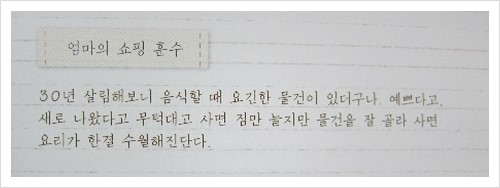 엄마의 쇼핑 훈수
30년 살림해보니 음식할 때 요긴한 물건이 있더구나. 예쁘다고,
새로 나왔다고 무턱대고 사면 짐만 늘지만 물건을 잘 골라 사면
요리가 한결 수월해진단다.